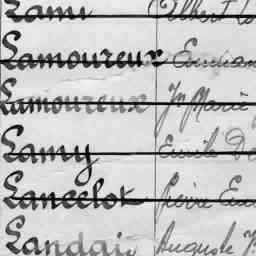 Lami Albert
Lamoureux
Lamoureux Jn Marie
Lamy Emile
Lancelot Pierre
Landai Auguste